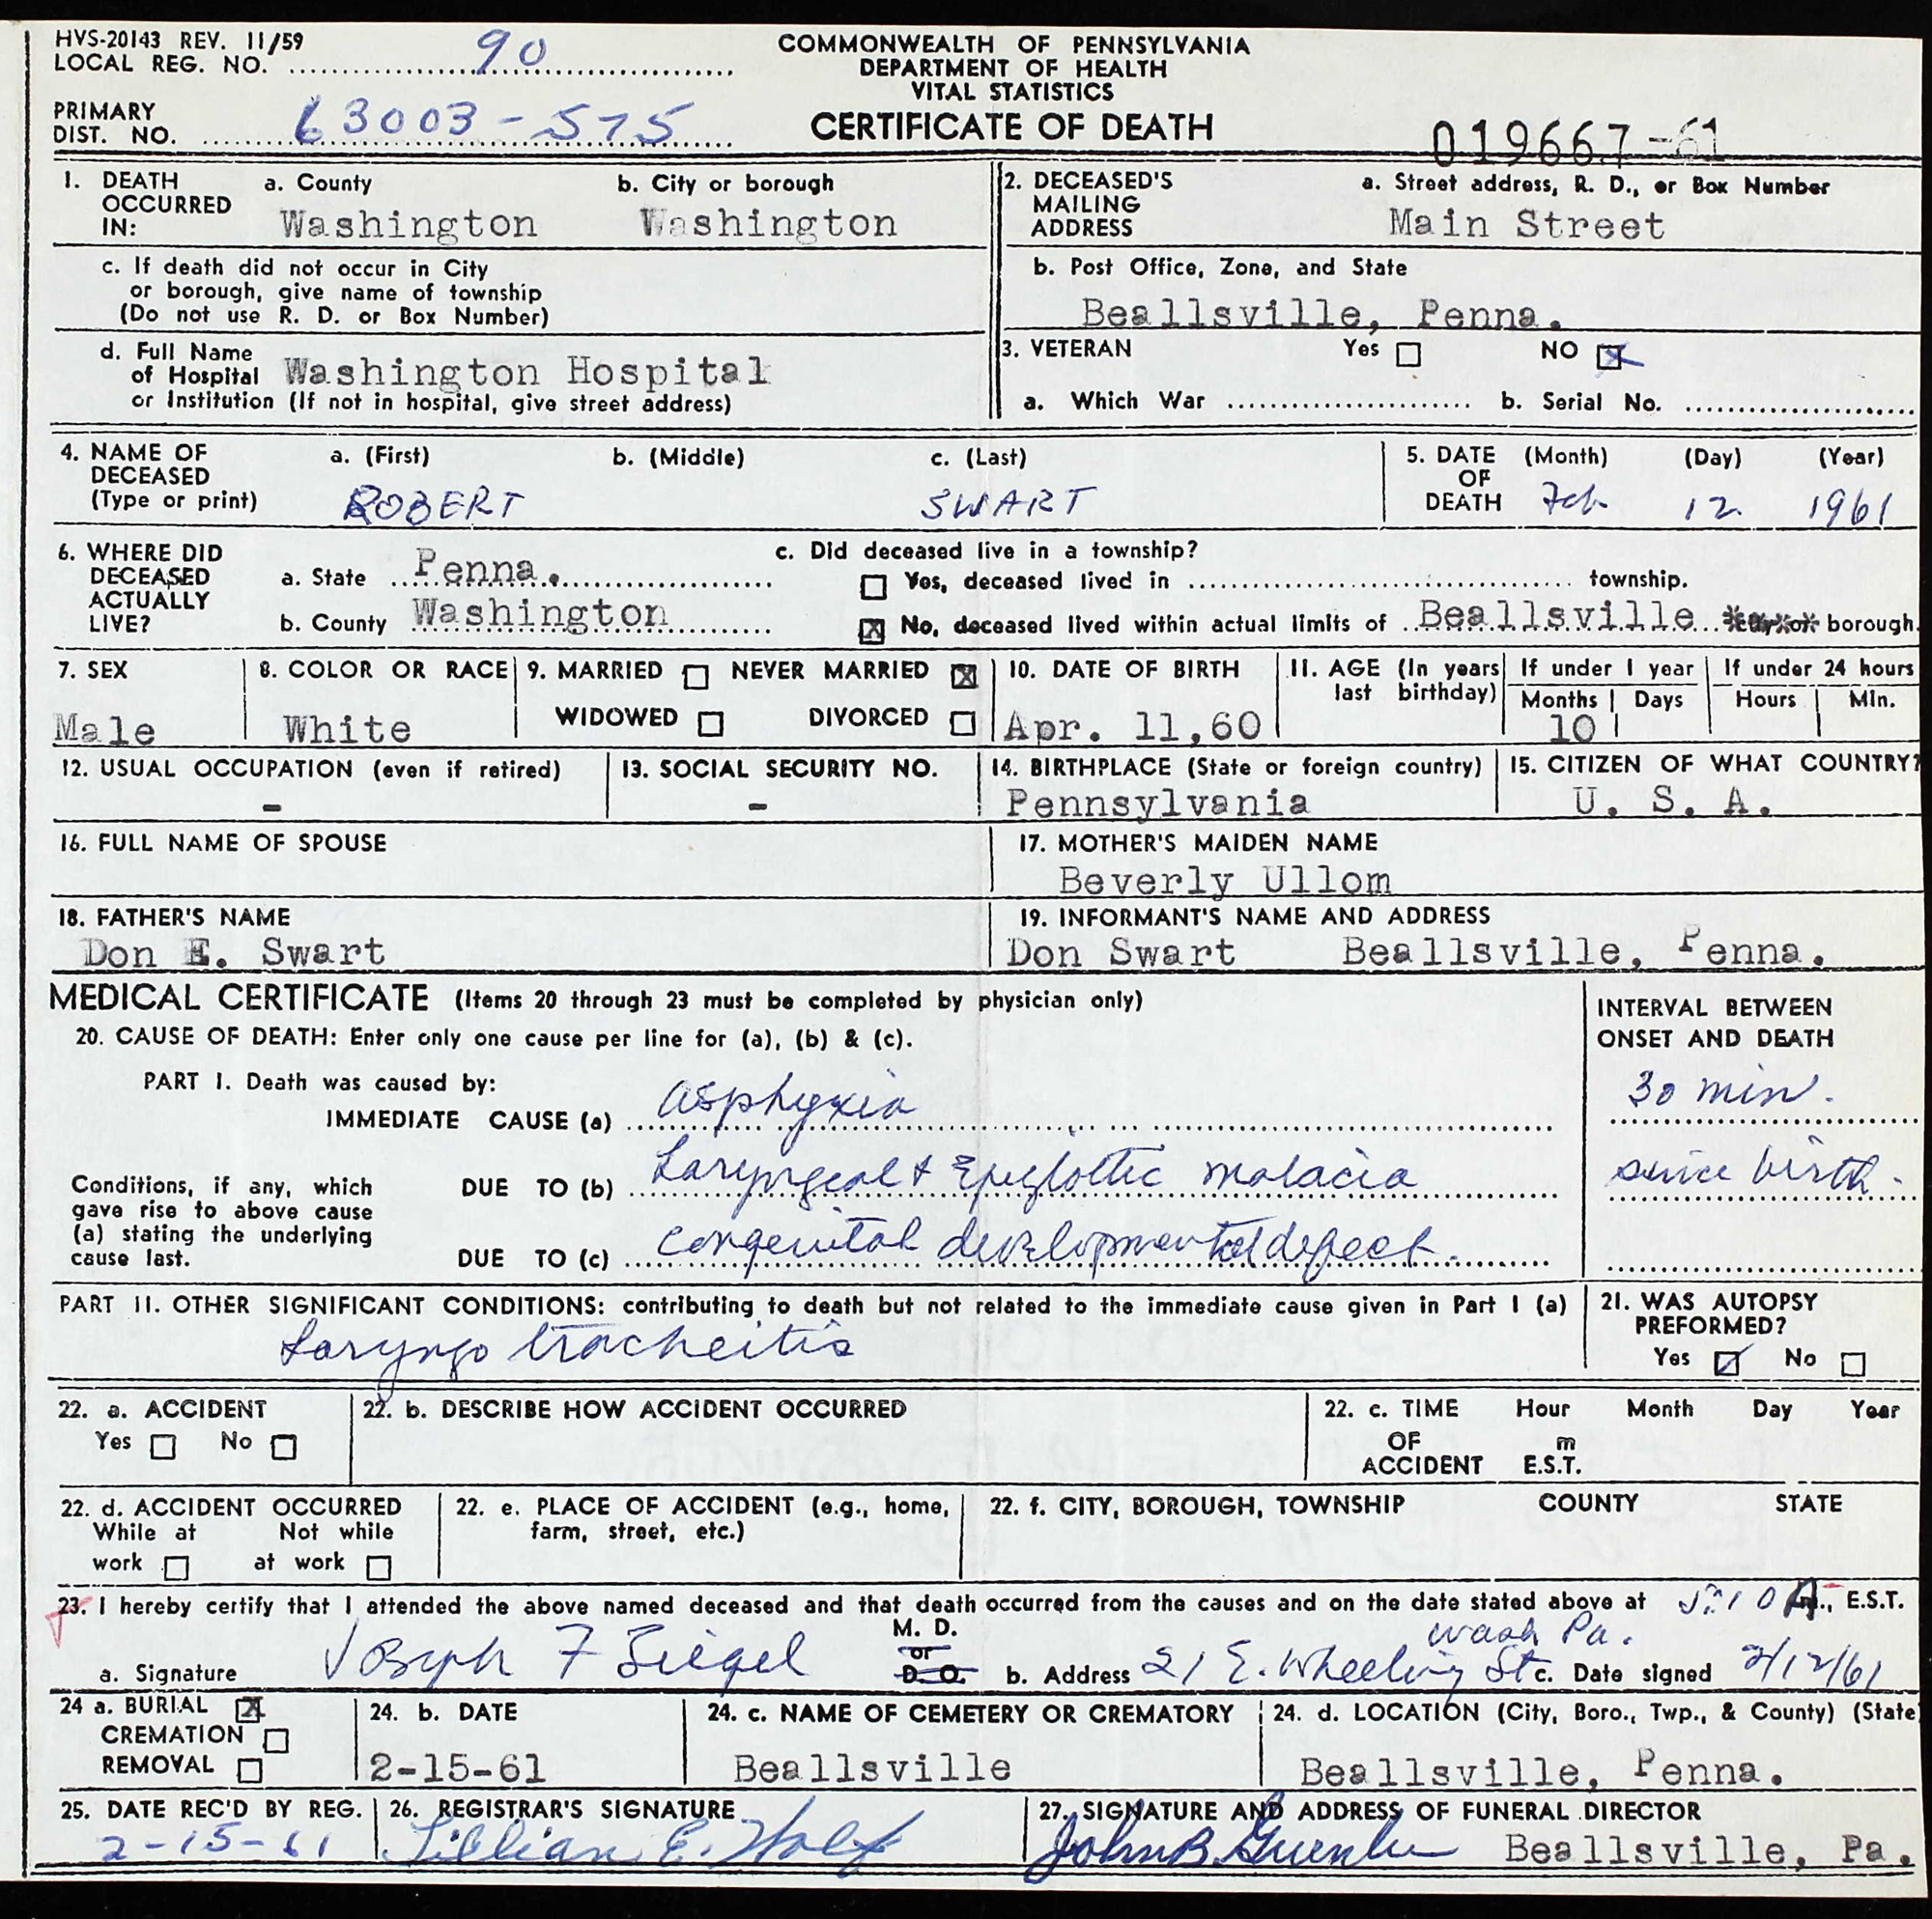 HVS-20143 REV. 11/59
LOCAL REG. NO. 90
COMMONWEALTH OF PENNSYLVANIA
DEPARTMENT OF HEALTH
VITAL STATISTICS
PRIMARY
DIST. NO. 63003-575
CERTIFICATE OF DEATH
019667-61
1. DEATH OCCURRED IN:
a. County
Washington
b. City or borough
Washington
c. If death did not occur in City
or borough, give name of township
(Do not use R. D. or Box Number)
d. Full Name
of Hospital Washington Hospital
or Institution (If not in hospital, give street address)
2. DECEASED'S MAILING ADDRESS
a. Street address, R. D., or Box Number
Main Street
b. Post Office, Zone, and State
Beallsville, Penna.
3. VETERAN Yes NO X
a. Which War b. Serial No.
4. NAME OF DECEASED
(Type or print)
a. (First) b. (Middle) c. (Last)
ROBERT SWART
5. DATE OF DEATH (Month) (Day) (Year)
Feb. 12 1961
6. WHERE DID DECEASED ACTUALLY LIVE?
a. State Penna.
b. County Washington
c. Did deceased live in a township?
Yes, deceased lived in township.
X No, deceased lived within actual limits of Beallsville city or borough.
7. SEX
Male
8. COLOR OR RACE
White
9. MARRIED NEVER MARRIED X
WIDOWED DIVORCED
10. DATE OF BIRTH
Apr. 11,60
11. AGE (In years
last birthday)
If under 1 year
Months Days
10
If under 24 hours
Hours Min.
12. USUAL OCCUPATION (even if retired)
-
13. SOCIAL SECURITY NO.
-
14. BIRTHPLACE (State or foreign country)
Pennsylvania
15. CITIZEN OF WHAT COUNTRY?
U. S. A.
16. FULL NAME OF SPOUSE
17. MOTHER'S MAIDEN NAME
Beverly Ullom
18. FATHER'S NAME
Don E. Swart
19. INFORMANT'S NAME AND ADDRESS
Don Swart Beallsville, Penna.
MEDICAL CERTIFICATE (Items 20 through 23 must be completed by physician only)
20. CAUSE OF DEATH: Enter only one cause per line for (a), (b) & (c).
INTERVAL BETWEEN
ONSET AND DEATH
PART I. Death was caused by:
IMMEDIATE CAUSE (a) asphyxia
30 min.
Conditions, if any, which
gave rise to above cause
(a) stating the underlying
cause last.
DUE TO (b) Laryngeal & Epiglottic malacia
since birth.
DUE TO (c) congenital developmental defect.
PART II. OTHER SIGNIFICANT CONDITIONS: contributing to death but not related to the immediate cause given in Part I (a)
Laryngo tracheitis
21. WAS AUTOPSY
PREFORMED?
Yes ✓ No
22. a. ACCIDENT
Yes No
22. b. DESCRIBE HOW ACCIDENT OCCURRED
22. c. TIME Hour Month Day Year
OF m
ACCIDENT E.S.T.
22. d. ACCIDENT OCCURRED
While at Not while
work at work
22. e. PLACE OF ACCIDENT (e.g., home,
farm, street, etc.)
22. f. CITY, BOROUGH, TOWNSHIP COUNTY STATE
23. I hereby certify that I attended the above named deceased and that death occurred from the causes and on the date stated above at 5:10 A m., E.S.T.
a. Signature Joseph F Siegel M. D. or D. O.
b. Address 21 E. Wheeling St Wash Pa.
c. Date signed 2/12/61
24 a. BURIAL X
CREMATION
REMOVAL
24. b. DATE
2-15-61
24. c. NAME OF CEMETERY OR CREMATORY
Beallsville
24. d. LOCATION (City, Boro., Twp., & County) (State
Beallsville, Penna.
25. DATE REC'D BY REG.
2-15-61
26. REGISTRAR'S SIGNATURE
Lillian E. Wolf
27. SIGNATURE AND ADDRESS OF FUNERAL DIRECTOR
John B. Beallsville, Pa.